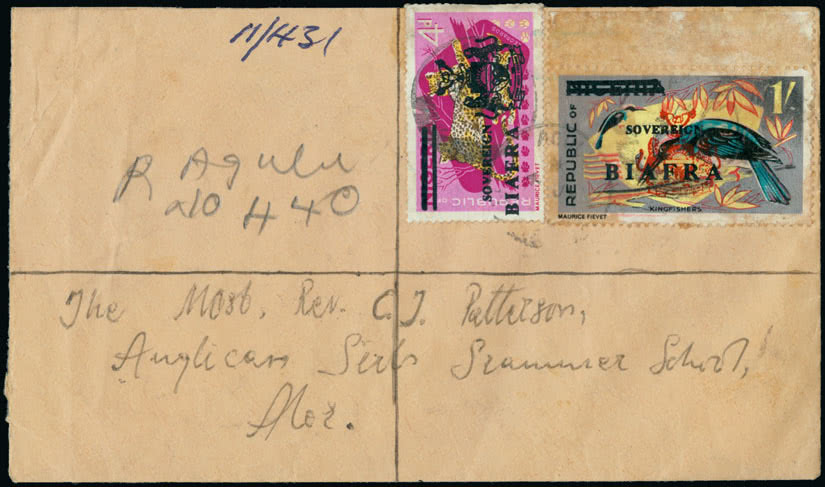 11/431
4d
LEOPARDS
SOVEREIGN
BIAFRA
REPUBLIC OF
MAURICE FIEVET
NIGERIA
1/-
REPUBLIC OF
SOVEREIGN
BIAFRA
KINGFISHERS
MAURICE FIEVET
R Agulu
No 440
The Most, Rev. C.J. Patterson,
Anglican Girls Grammar School,
Alor.